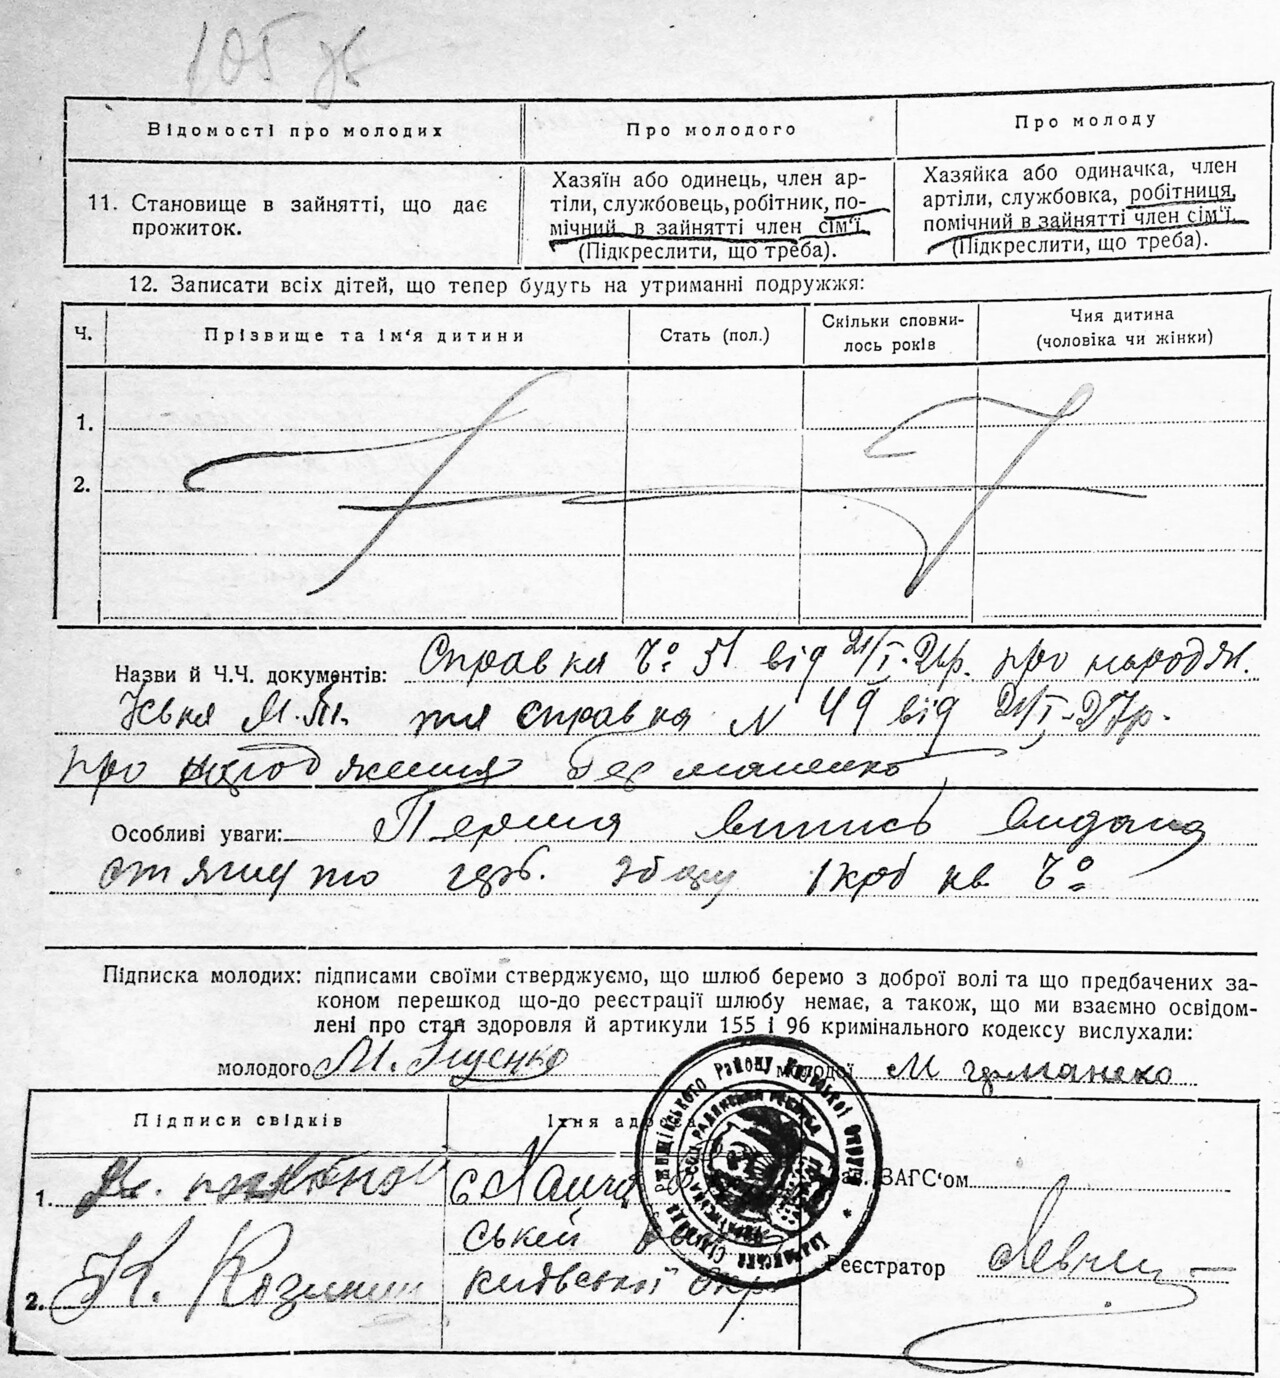 105
Відомості про молодих
Про молодого
Про молоду
11. Становище в зайнятті, що дає
прожиток.
Хазяїн або одинець, член ар-
тіли, службовець, робітник, по-
мічний в зайнятті член сім'ї.
(Підкреслити, що треба).
Хазяйка або одиначка, член
артіли, службовка, робітниця,
помічний в зайнятті член сім'ї.
(Підкреслити, що треба).
12. Записати всіх дітей, що тепер будуть на утриманні подружжя:
Ч.
Прізвище та ім'я дитини
Стать (пол.)
Скільки сповни-
лось років
Чия дитина
(чоловіка чи жінки)
1.
2.
Назви й Ч.Ч. документів: Справка Ч° 51 від 21/I- про народж.
М. та справка N 49 від 21/I-27р.
про народження Германенко
Особливі уваги: Перша випись видана
стягнуто гєрб. збору 1 крб кв. Ч°
Підписка молодих: підписами своїми стверджуємо, що шлюб беремо з доброї волі та що предбачених за-
коном перешкод що-до реєстрації шлюбу немає, а також, що ми взаємно освідом-
лені про стан здоровля й артикули 155 і 96 кримінального кодексу вислухали:
молодого М.
молодої М Германеко
Підписи свідків
Їхня адреса
1.
с
ській
2. К.
Київської Окр.
ЗАГС'ом
Реєстратор
Району Київської Округи